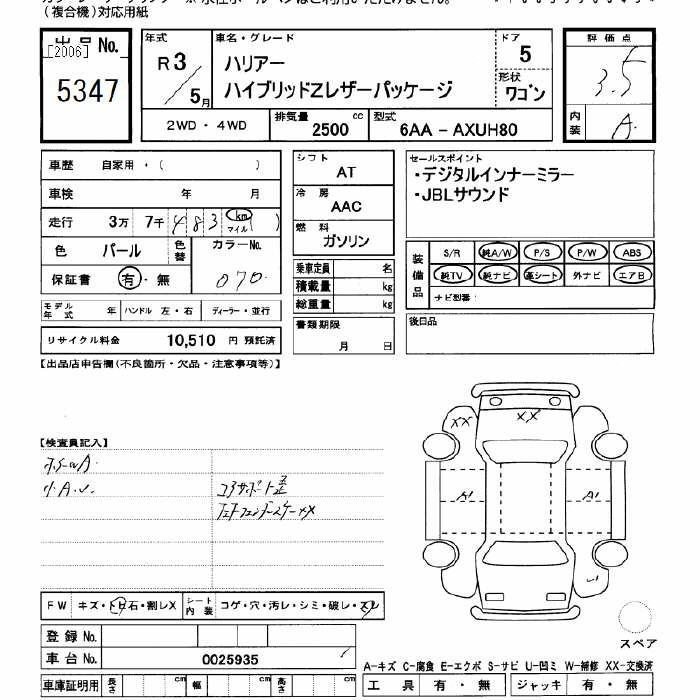 (複合機)対応用紙
出品No.
[2006]
5347
年式
R3/5月
車名・グレード
ハリアー
ハイブリッドZレザーパッケージ
ドア
5
形状
ワゴン
評価点
3.5
内装
A
2WD・4WD
排気量
2500 cc
型式
6AA-AXUH80
車歴 自家用・( )
車検 年 月
走行 3万 7千 483 km マイル ( )
色 パール 色替 カラーNo.
070
保証書 有・無
シフト
AT
冷房
AAC
燃料
ガソリン
乗車定員 名
積載量 kg
総重量 kg
書類期限
月 日
セールスポイント
・デジタルインナーミラー
・JBLサウンド
装備品
S/R 純A/W P/S P/W ABS
純TV 純ナビ 革シート 外ナビ エアB
ナビ型番:
後日品
モデル年式 年 ハンドル 左・右 ディーラー・並行
リサイクル料金 10,510 円 預託済
【出品店申告欄(不良箇所・欠品・注意事項等)】
【検査員記入】
小A.U.
コアサポート歪
XX
XX
A1
A1
FW キズ・トビ石・割レX シート内装 コゲ・穴・汚レ・シミ・破レ・スレ
登録No.
車台No. 0025935
スペア
A-キズ C-腐食 E-エクボ S-サビ U-凹ミ W-補修 XX-交換済
車庫証明用 長さ cm 幅 cm 高さ cm
工具 有・無 ジャッキ 有・無